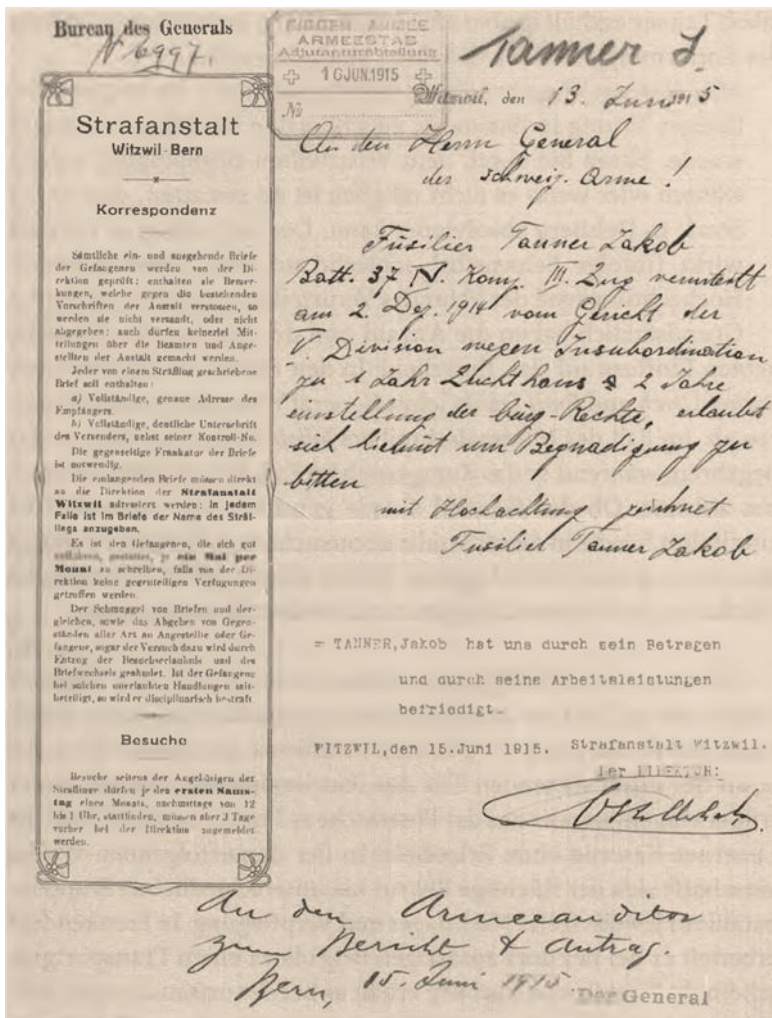 Bureau des Generals
N 6997.
ARMEESTAB
Adjutanturabteilung
16 JUN. 1915
No
Tanner J.
Witzwil, den 13. Juni 1915
An den Herrn General
der schweiz. Arme!
Strafanstalt
Witzwil-Bern
Korrespondenz
Sämtliche ein- und ausgehende Briefe
der Gefangenen werden von der Di-
rektion geprüft; enthalten sie Bemer-
kungen, welche gegen die bestehenden
Vorschriften der Anstalt verstossen, so
werden sie nicht versandt, oder nicht
abgegeben; auch dürfen keinerlei Mit-
teilungen über die Beamten und Ange-
stellten der Anstalt gemacht werden.
Jeder von einem Sträfling geschriebene
Brief soll enthalten:
a) Vollständige, genaue Adresse des
Empfängers.
b) Vollständige, deutliche Unterschrift
des Versenders, nebst seiner Kontroll-No.
Die gegenseitige Frankatur der Briefe
ist notwendig.
Die einlangenden Briefe müssen direkt
an die Direktion der Strafanstalt
Witzwil adressiert werden; in jedem
Falle ist im Briefe der Name des Sträf-
lings anzugeben.
Es ist den Gefangenen, die sich gut
aufführen, gestattet, je ein Mal per
Monat zu schreiben, falls von der Di-
rektion keine gegenteiligen Verfügungen
getroffen werden.
Der Schmuggel von Briefen und der-
gleichen, sowie das Abgeben von Gegen-
ständen aller Art an Angestellte oder Ge-
fangene, sogar der Versuch dazu wird durch
Entzug der Besuchserlaubnis und des
Briefwechsels geahndet. Ist der Gefangene
bei solchen unerlaubten Handlungen mit-
beteiligt, so wird er disciplinarisch bestraft.
Besuche
Besuche seitens der Angehörigen der
Sträflinge dürfen je den ersten Sams-
tag eines Monats, nachmittags von 12
bis 1 Uhr, stattfinden, müssen aber 3 Tage
vorher bei der Direktion angemeldet
werden.
Füsilier Tanner Jakob
Batt. 37 IV. Komp. III. Zug verurteilt
am 2. Dez. 1914 vom Gericht der
V. Division wegen Insubordination
zu 1 Jahr Zuchthaus & 2 Jahre
einstellung der bürg-Rechte, erlaubt
sich um Begnadigung zu
bitten
mit Hochachtung zeichnet
Fusilier Tanner Jakob
= TANNER, Jakob hat uns durch sein Betragen
und durch seine Arbeitsleistungen
befriedigt.
WITZWIL, den 15. Juni 1915. Strafanstalt Witzwil.
Der DIREKTOR:
An den Armeeauditor
zum Bericht & Antrag.
Bern, 15. Juni 1915. Der General